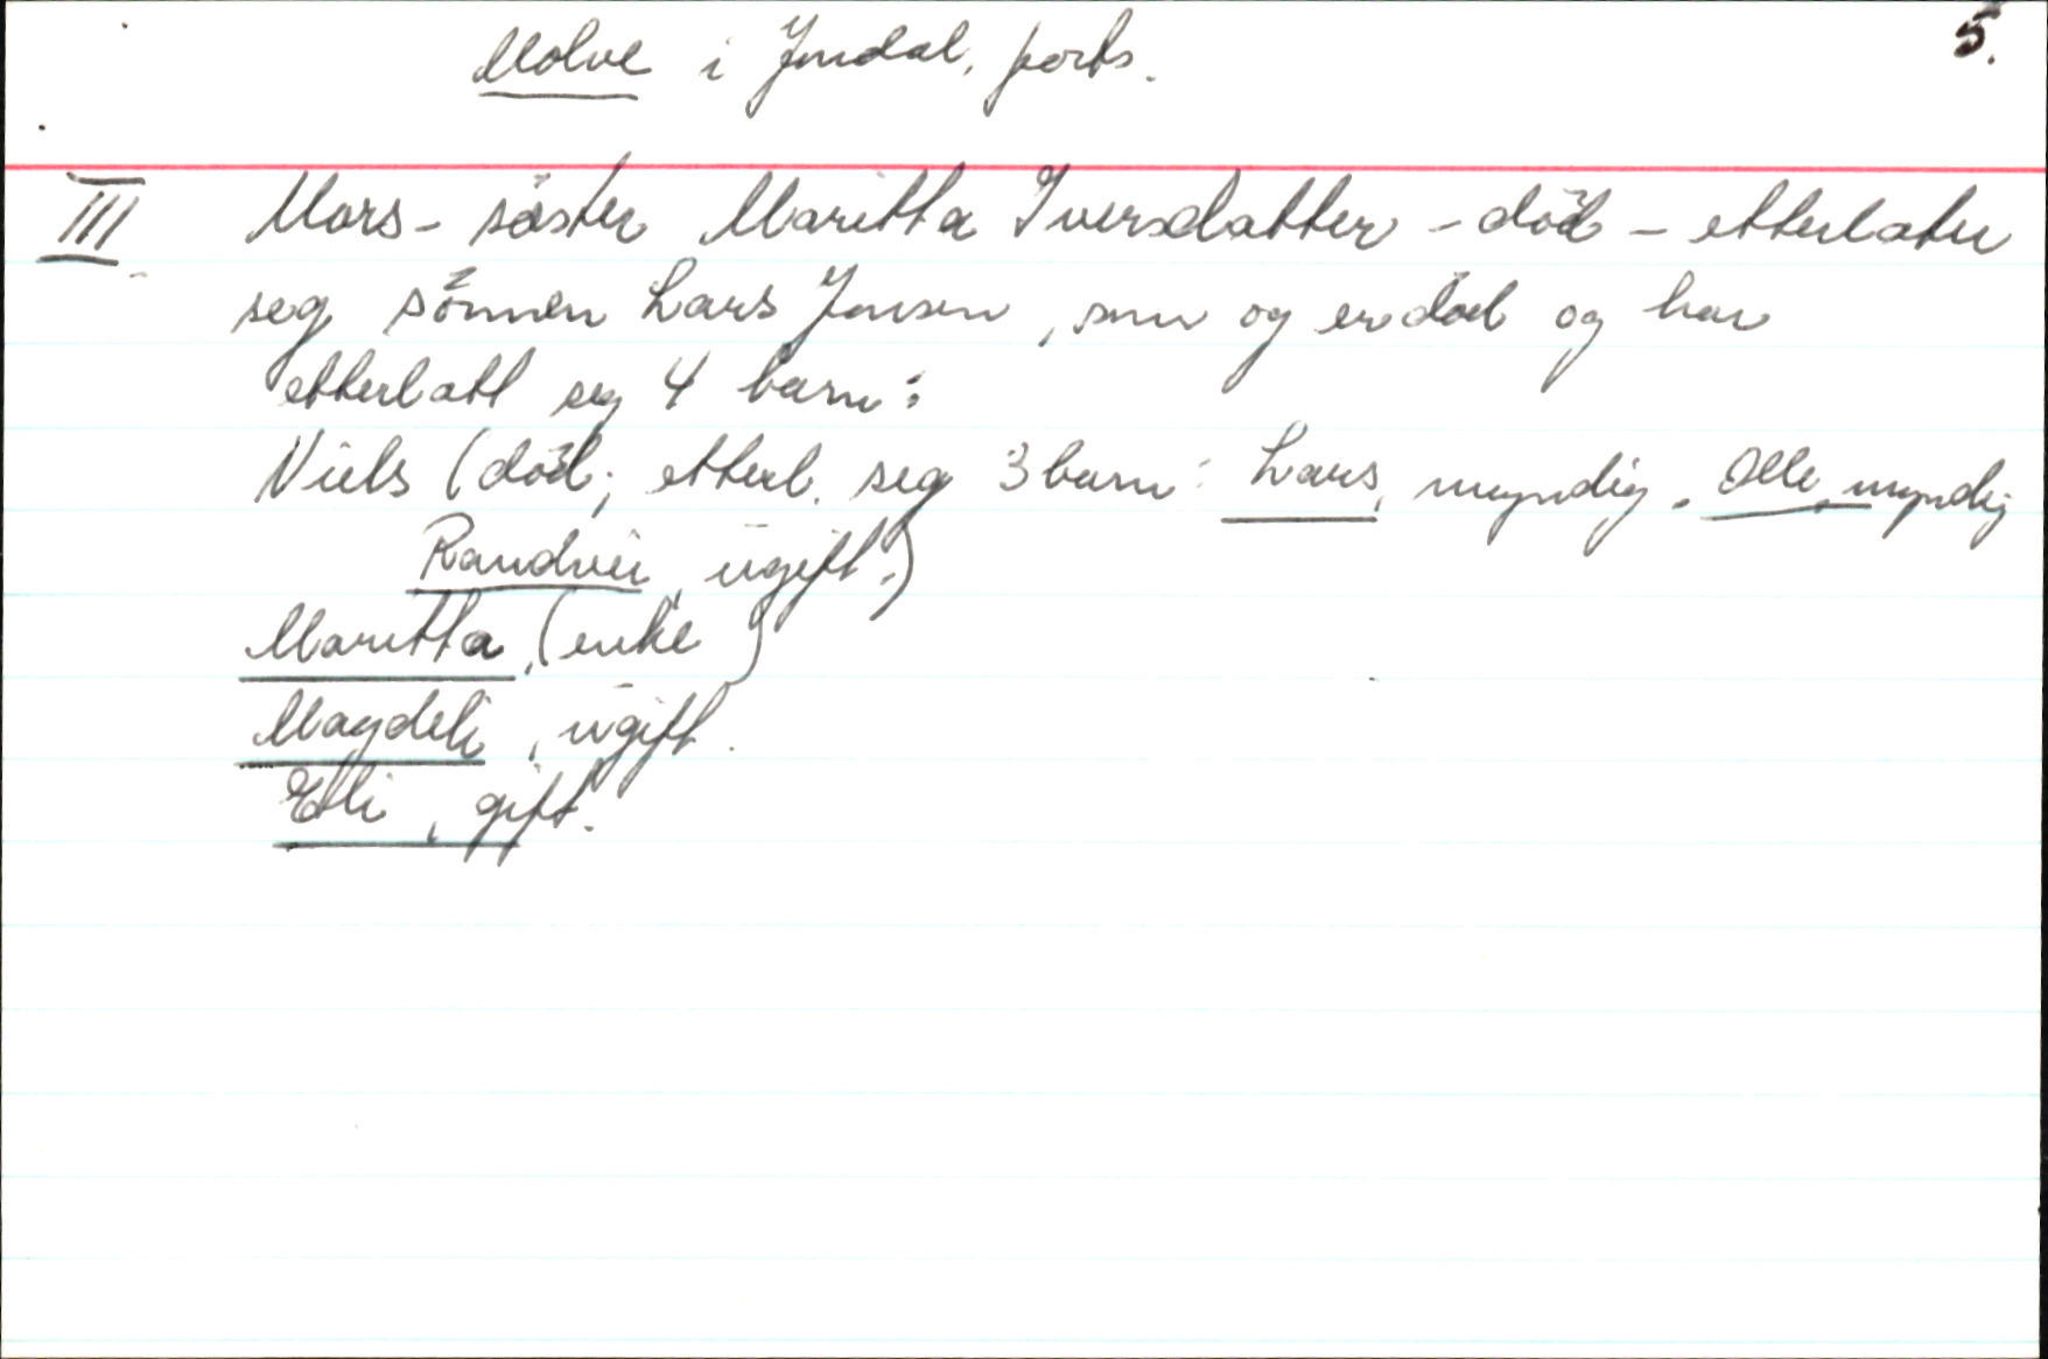 Molve i Jondal, forts. 5.
III Mors-søster Maritta Iversdatter - död - etterlater
seg sönnen Lars Jonsen, som og er död og har
etterlatt seg 4 barn:
Niels (död; etterl. seg 3 barn: Lars, myndig. Olle, myndig
Randvei, ugift.)
Maritta, (enke)
Magdeli, ugift.
Elli, gift.